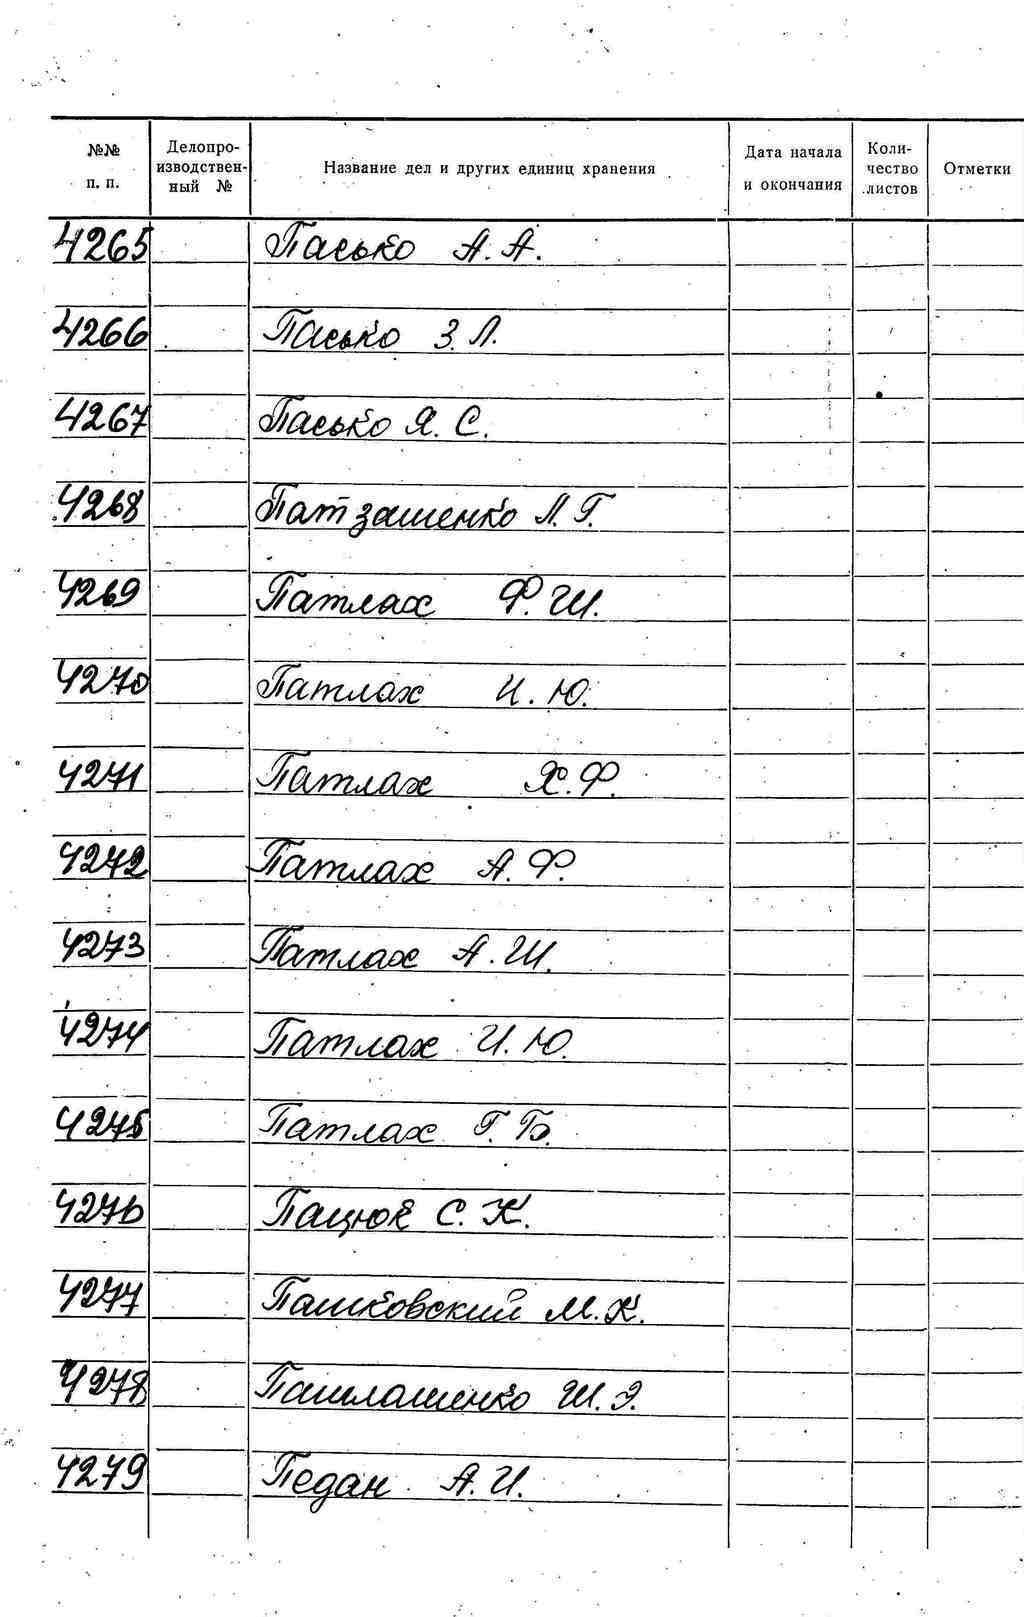 №№ п. п. Делопроизводственный № Название дел и других единиц хранения Дата начала и окончания Количество листов Отметки
4265 Пасько А. А.
4266 Пасько З. Л.
4267 Пасько Я. С.
4268 Патзашенко Л. Г.
4269 Патлах Ф. Ш.
4270 Патлах И. Ю.
4271 Патлах Х. Ф.
4272 Патлах А. Ф.
4273 Патлах А. Ш.
4274 Патлах И. Ю.
4275 Патлах Г. Б.
4276 Пацюк С. К.
4277 Пашковский М. К.
4278 Пашлашенко Ш. Э.
4279 Педан А. И.